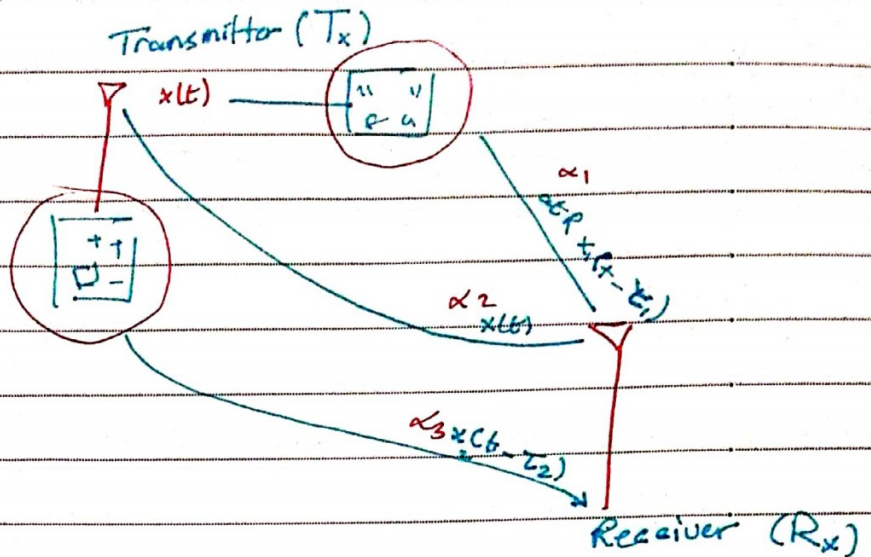 Transmitter (Tx)
x(t)
α1
α2
x(t)
α3 x(t - τ2)
Receiver (Rx)